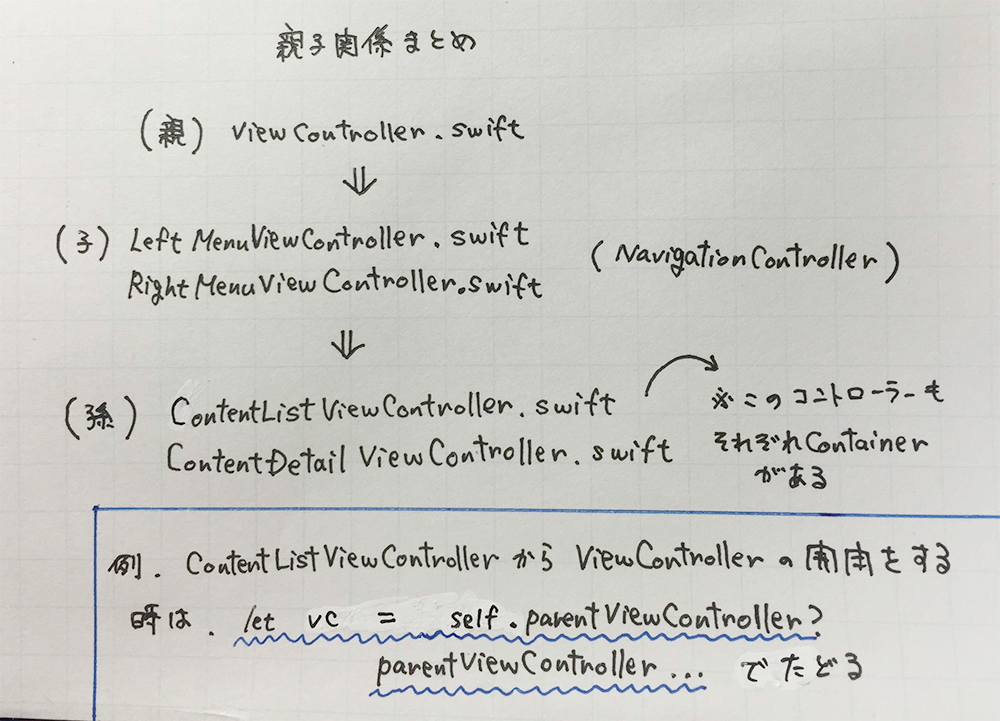 親子関係まとめ
(親) ViewController.swift
⇓
(子) LeftMenuViewController.swift
RightMenuViewController.swift
(NavigationController)
⇓
(孫) ContentListViewController.swift
ContentDetailViewController.swift
※このコントローラーも
それぞれContainer
がある
例. ContentListViewControllerからViewControllerの開閉をする
時は. let vc = self.parentViewController?
parentViewController... でたどる